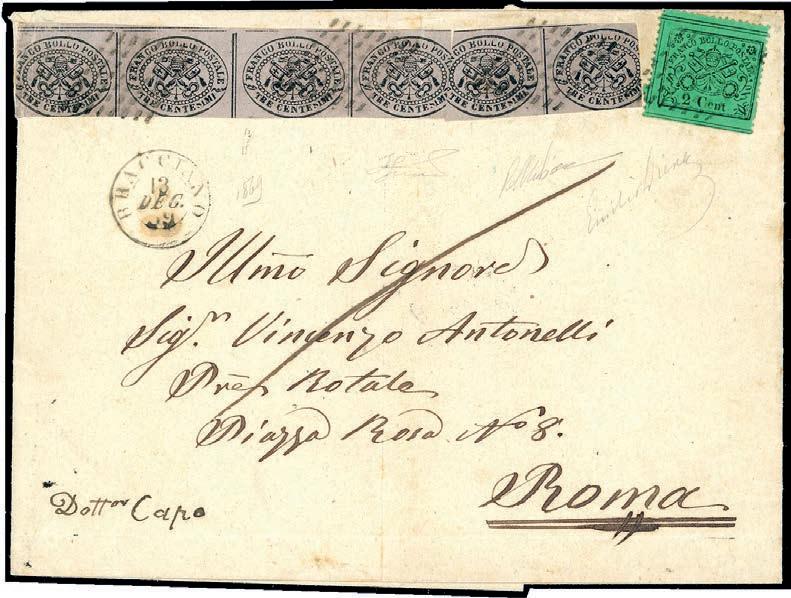 FRANCO BOLLO POSTALE TRE CENTESIMI
FRANCO BOLLO POSTALE TRE CENTESIMI
FRANCO BOLLO POSTALE TRE CENTESIMI
FRANCO BOLLO POSTALE TRE CENTESIMI
FRANCO BOLLO POSTALE TRE CENTESIMI
FRANCO BOLLO POSTALE TRE CENTESIMI
FRANCO BOLLO POSTALE
2 Cent
BRACCIANO
13
DEC.
69
1869
Illmo Signore
Sigr. Vincenzo Antonelli
Pre Rotale
Piazza Rosa No 8.
Roma
Dottor Capo